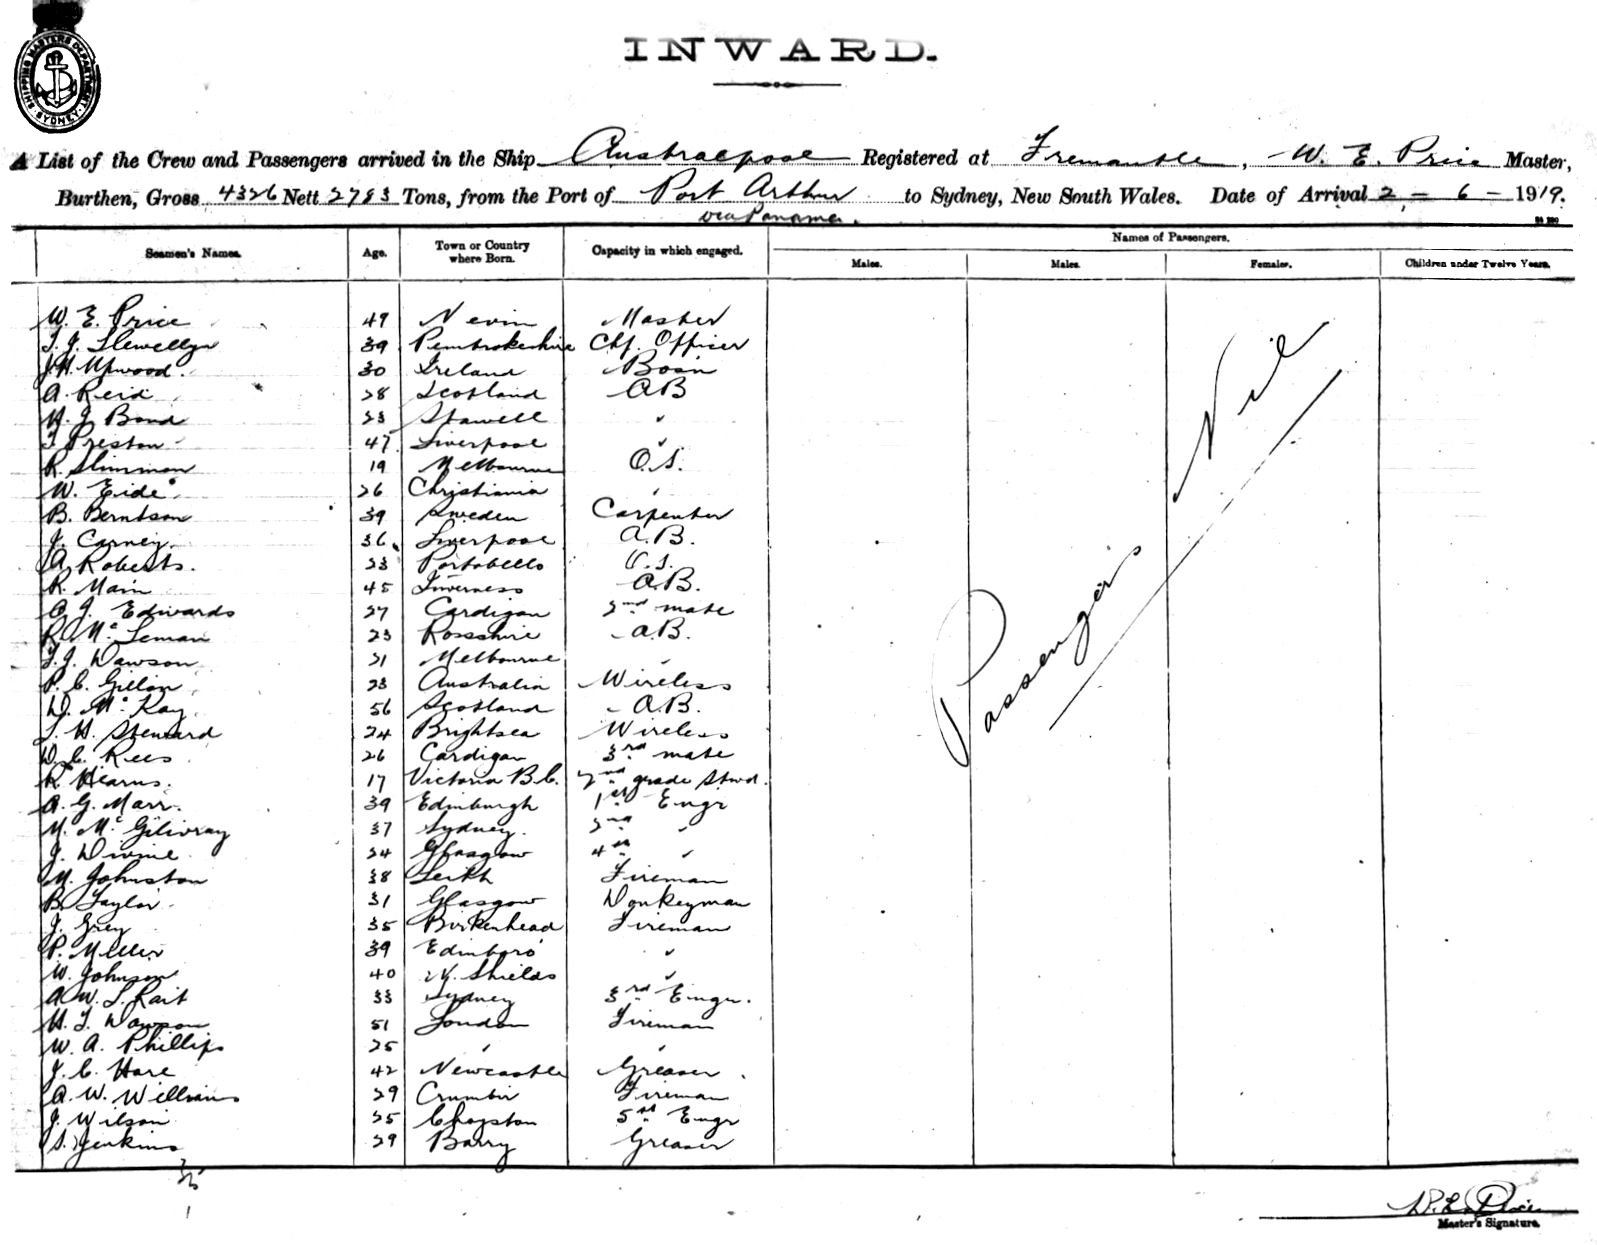 SHIPPING MASTERS DEPARTMENT. SYDNEY
INWARD.
A List of the Crew and Passengers arrived in the Ship Australpool Registered at Fremantle, W. E. Price Master,
Burthen, Gross 4326 Nett 2783 Tons, from the Port of Port Arthur to Sydney, New South Wales. Date of Arrival 2 - 6 - 1919.
via Panama.
Seamen's Names. Age. Town or Country where Born. Capacity in which engaged. Names of Passengers.
Males. Males. Females. Children under Twelve Years.
W. E. Price 49 Nevin Master
T. J. Llewellyn 39 Pembrokeshire Chf. Officer
J. H. Upwood. 30 Ireland Bosn
A. Reid 28 Scotland AB
H. J. Bond 23 Stawell "
T. Preston 47 Liverpool "
R. Slimmon 19 Melbourne O.S.
W. Eide 26 Christiania "
B. Berntson 39 Sweden Carpenter
J. Carney. 36 Liverpool A.B.
A. Roberts. 23 Portobello O.S.
R. Main 45 Inverness A.B.
J. Edwards 27 Cardigan 2nd mate
R. McLeman 23 Rosshire A.B.
T. J. Dawson 21 Melbourne "
P. C. Gillon 23 Australia Wireless
D. McKay 56 Scotland A.B.
T. H. Steward 24 Brightsea Wireless
D. C. Rees 26 Cardigan 3rd mate
R. Hearns. 17 Victoria B.C. 2nd grade Stwd.
A. G. Marr. 39 Edinburgh 1st Engr
N. McGilivray 37 Sydney. 2nd "
J. Divine 24 Glasgow 4th "
N. Johnston 38 Leith Fireman
B. Taylor 31 Glasgow Donkeyman
J. Grey 35 Birkenhead Fireman
P. Miller 39 Edinboro' "
W. Johnson 40 N. Shields "
A. W. L. Rait 33 Sydney 3rd Engr.
H. T. Dawson 51 London Fireman
W. A. Phillips 25 " "
J. C. Hare 42 Newcastle Greaser
A. W. Williams 29 Fireman
J. Wilson 25 5th Engr
S. Jenkins 29 Barry Greaser
Passengers Nil
35
W. E. Price
Master's Signature.